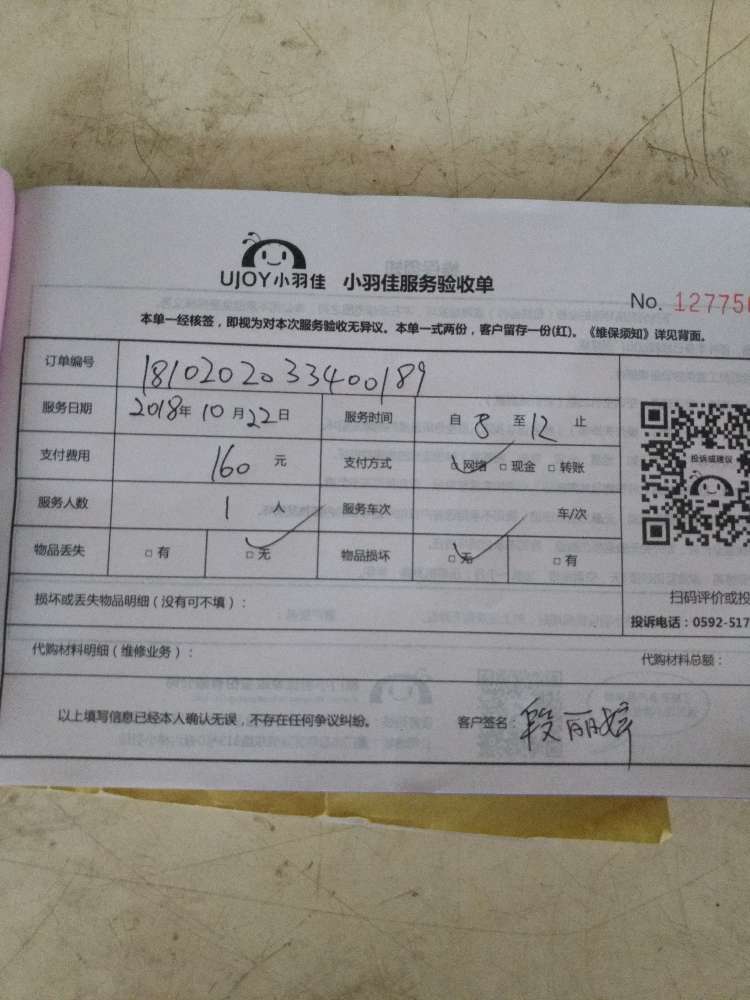 UJOY小羽佳 小羽佳服务验收单
No. 127756
本单一经核签，即视为对本次服务验收无异议。本单一式两份，客户留存一份(红)。《维保须知》详见背面。
订单编号 1810202033400189
服务日期 2018年10月22日 服务时间 自8至12止
支付费用 160元 支付方式 □网络 □现金 □转账
投诉或建议
服务人数 1人 服务车次 车/次
物品丢失 □有 □无 物品损坏 □无 □有
损坏或丢失物品明细（没有可不填）：
扫码评价或投
投诉电话：0592-517
代购材料明细（维修业务）：
代购材料总额：
以上填写信息已经本人确认无误，不存在任何争议纠纷。 客户签名：段丽婷